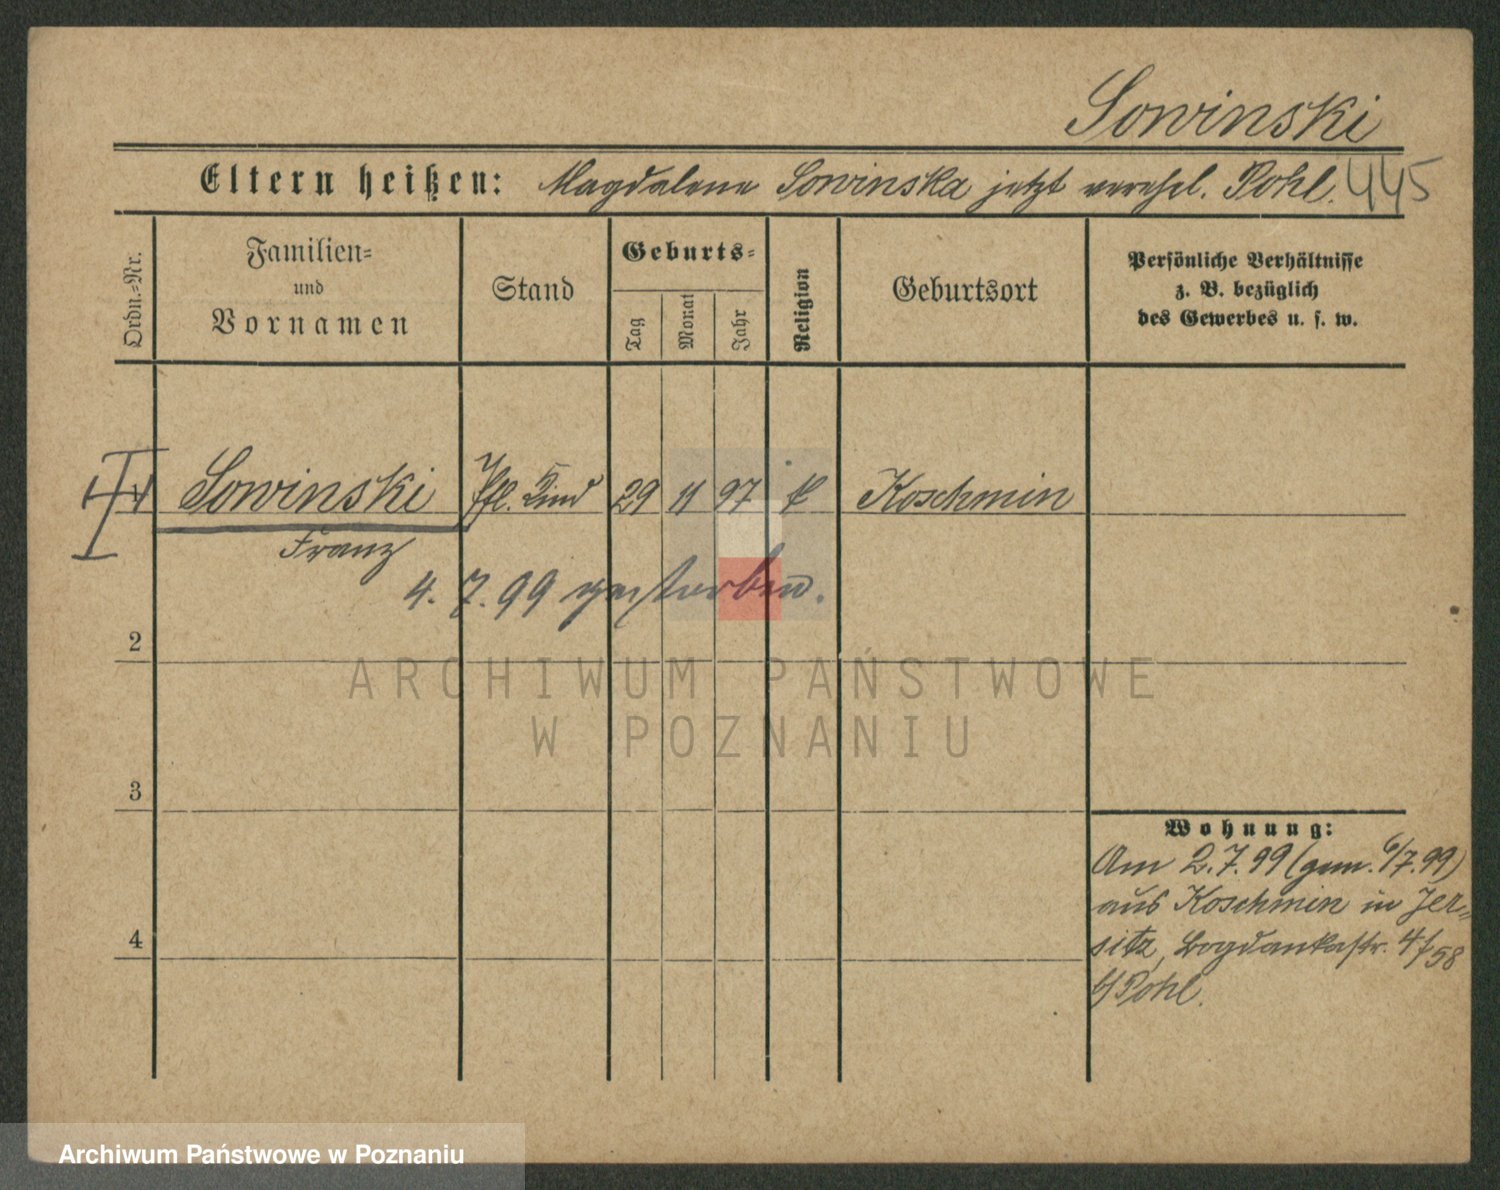 Sowinski
Eltern heißen: Magdalene Sowinska jetzt verehel. Pohl. 445
Ordn.-Nr.
Familien-
und
Vornamen
Stand
Geburts-
Tag
Monat
Jahr
Religion
Geburtsort
Persönliche Verhältnisse
z. B. bezüglich
des Gewerbes u. s. w.
Sowinski Pfl. Kind 29 11 97 k Koschmin
Franz
4. 7. 99 gestorben.
2
ARCHIWUM PAŃSTWOWE
W POZNANIU
3
Wohnung:
Am 2.7.99 (gem. 6/7.99)
aus Koschmin in Jer-
sitz, Bogdankastr. 4/58
b/Pohl.
4
Archiwum Państwowe w Poznaniu